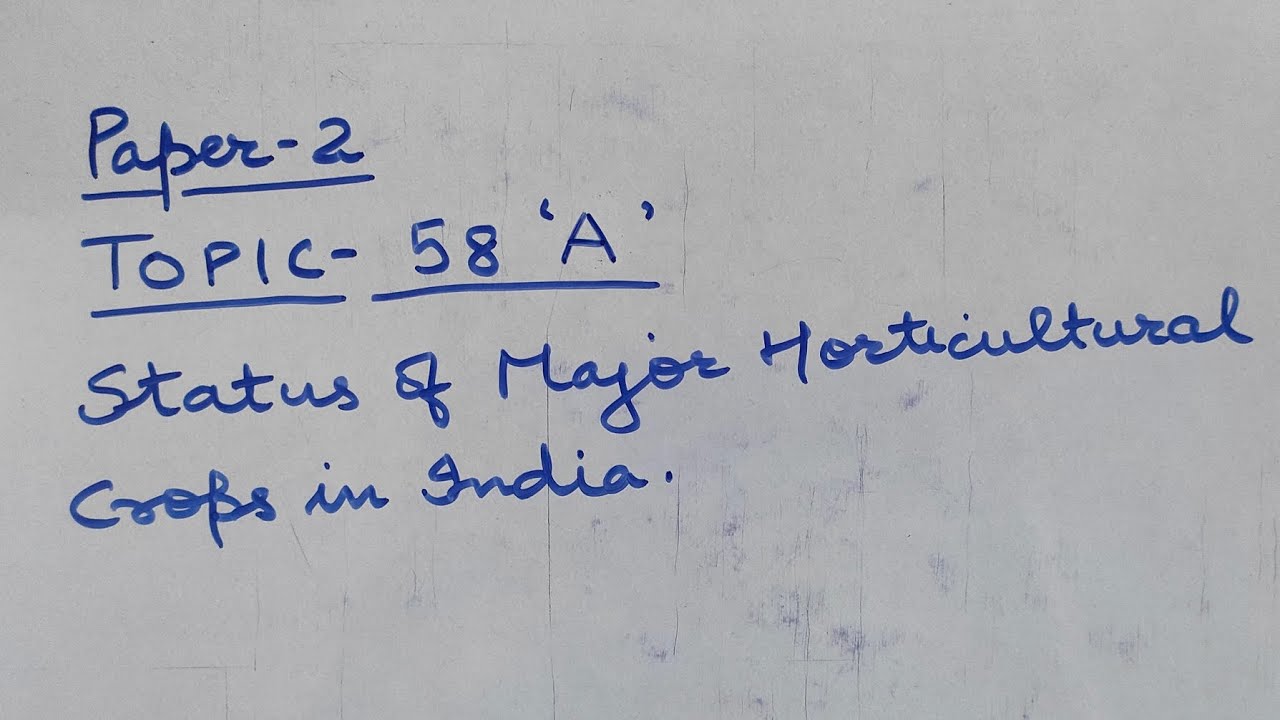 Paper-2
TOPIC- 58 'A'
Status of Major Horticultural
Crops in India.